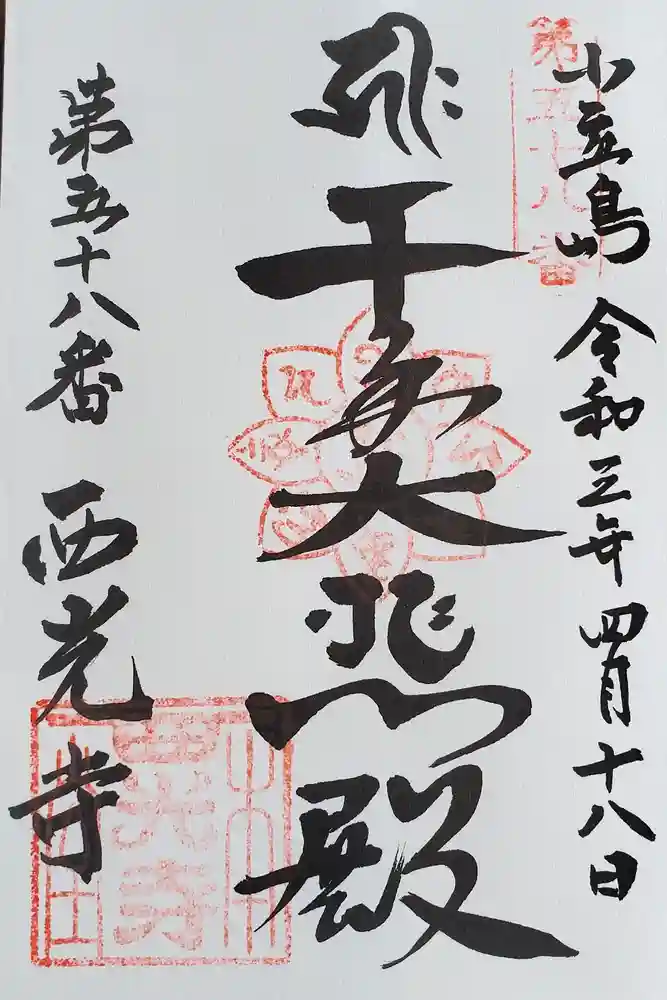 小豆島 令和三年四月十八日
第五十八番
千手大悲殿
第五十八番 西光寺
西光寺